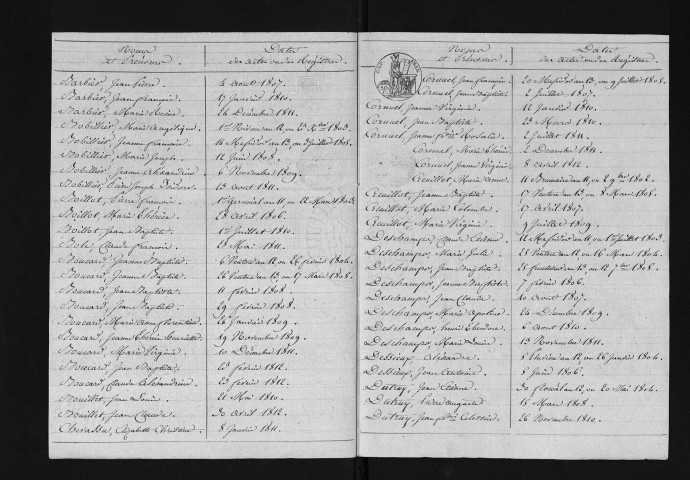 Noms et Prénoms.
Dates des actes ou des Registres.
Barbier, Jean Pierre. 6 Aout 1807.
Barbier, Jean françois. 17 Janvier 1810.
Barbier, Marie 24 Décembre 1811.
Bobillier, Marie Angélique.
Bobillier, Jeanne françoise. 14 Messidor an 13, ou 3 Juillet 1805.
Bobillier, Marie Joseph. 12 Juin 1808.
Bobillier, Jeanne Alexandrine 6 Novembre 1809.
Bobillier, Pierre Joseph Isidore. 13 Aout 1811.
Boillot, Pierre françois. 1er Germinal an 11 ou 22 Mars 1803.
Boillot, Marie Thérèse. 28 Avril 1806.
Boillot, Jean Baptiste. 1er Juillet 1810.
Bole, Claude françois. 28 Mai 1811.
Boucard, Jeanne Baptiste. 6 Ventose an 12 ou 26 février 1804.
Boucard, Jeanne Baptiste. 26 Ventose an 13 ou 17 Mars 1805.
Boucard, Jean Baptiste. 11 février 1808.
Boucard, Jean Baptiste. 29 février 1808.
Boucard, Marie Anne florentine. 26 Janvier 1809.
Boucard, Jeanne Thérèse henriette. 19 Novembre 1809.
Boucard, Marie Virginie. 10 Décembre 1811.
Boucard, Jean Baptiste. 23 février 1812.
Boucard, Claude Alexandrine. 23 février 1812.
Bouillet, Jean Louis. 21 Mai 1810.
Bouillet, Jean Claude. 30 Avril 1812.
Chevassu, Elizabeth Christine. 8 Janvier 1811.
Noms et Prénoms.
Dates des actes ou des Registres.
Cornuel, Jean françois. 20 Messidor an 13, ou 9 Juillet 1805.
Cornuel, Jeanne Baptiste. 2 Juillet 1807.
Cornuel, Jeanne Virginie. 12 Janvier 1810.
Cornuel, Jean Baptiste. 23 Mars 1810.
Cornuel, Jeanne Rosalie. 2 Juillet 1811.
Cornuel, Marie 2 Décembre 1811.
Cornuel, Jeanne Virginie. 8 Avril 1812.
Creuillot, Marie Anne. 11 Brumaire an 11, ou 2 9bre 1802.
Creuillot, Jeanne Baptiste. 17 Ventose an 13, ou 8 Mars 1805.
Creuillot, Marie Colombe. 17 Avril 1807.
Creuillot, Marie Virginie. 9 Juillet 1809.
Deschamps, Claude Etienne. 12 Messidor an 11 ou 1er Juillet 1803.
Deschamps, Marie Julie. 25 Ventose an 12 ou 16 Mars 1804.
Deschamps, Jean Baptiste. 25 fructidor an 13 ou 12 7bre 1805.
Deschamps, Jeanne Baptiste. 7 février 1806.
Deschamps, Jean Claude. 10 Aout 1807.
Deschamps, Marie 24 Décembre 1809.
Deschamps, Théodore. 6 Aout 1810.
Deschamps, Marie Louise. 13 Novembre 1811.
Dessieux, Alexandre. 5 Pluviose an 12, ou 26 Janvier 1804.
Dessieux, Jean Antoine. 5 Juin 1806.
Dutruy, Jean Etienne. 30 floréal an 12, ou 20 Mai 1804.
Dutruy, Pierre Auguste. 15 Mars 1808.
Dutruy, Jean Célestin. 26 Novembre 1810.